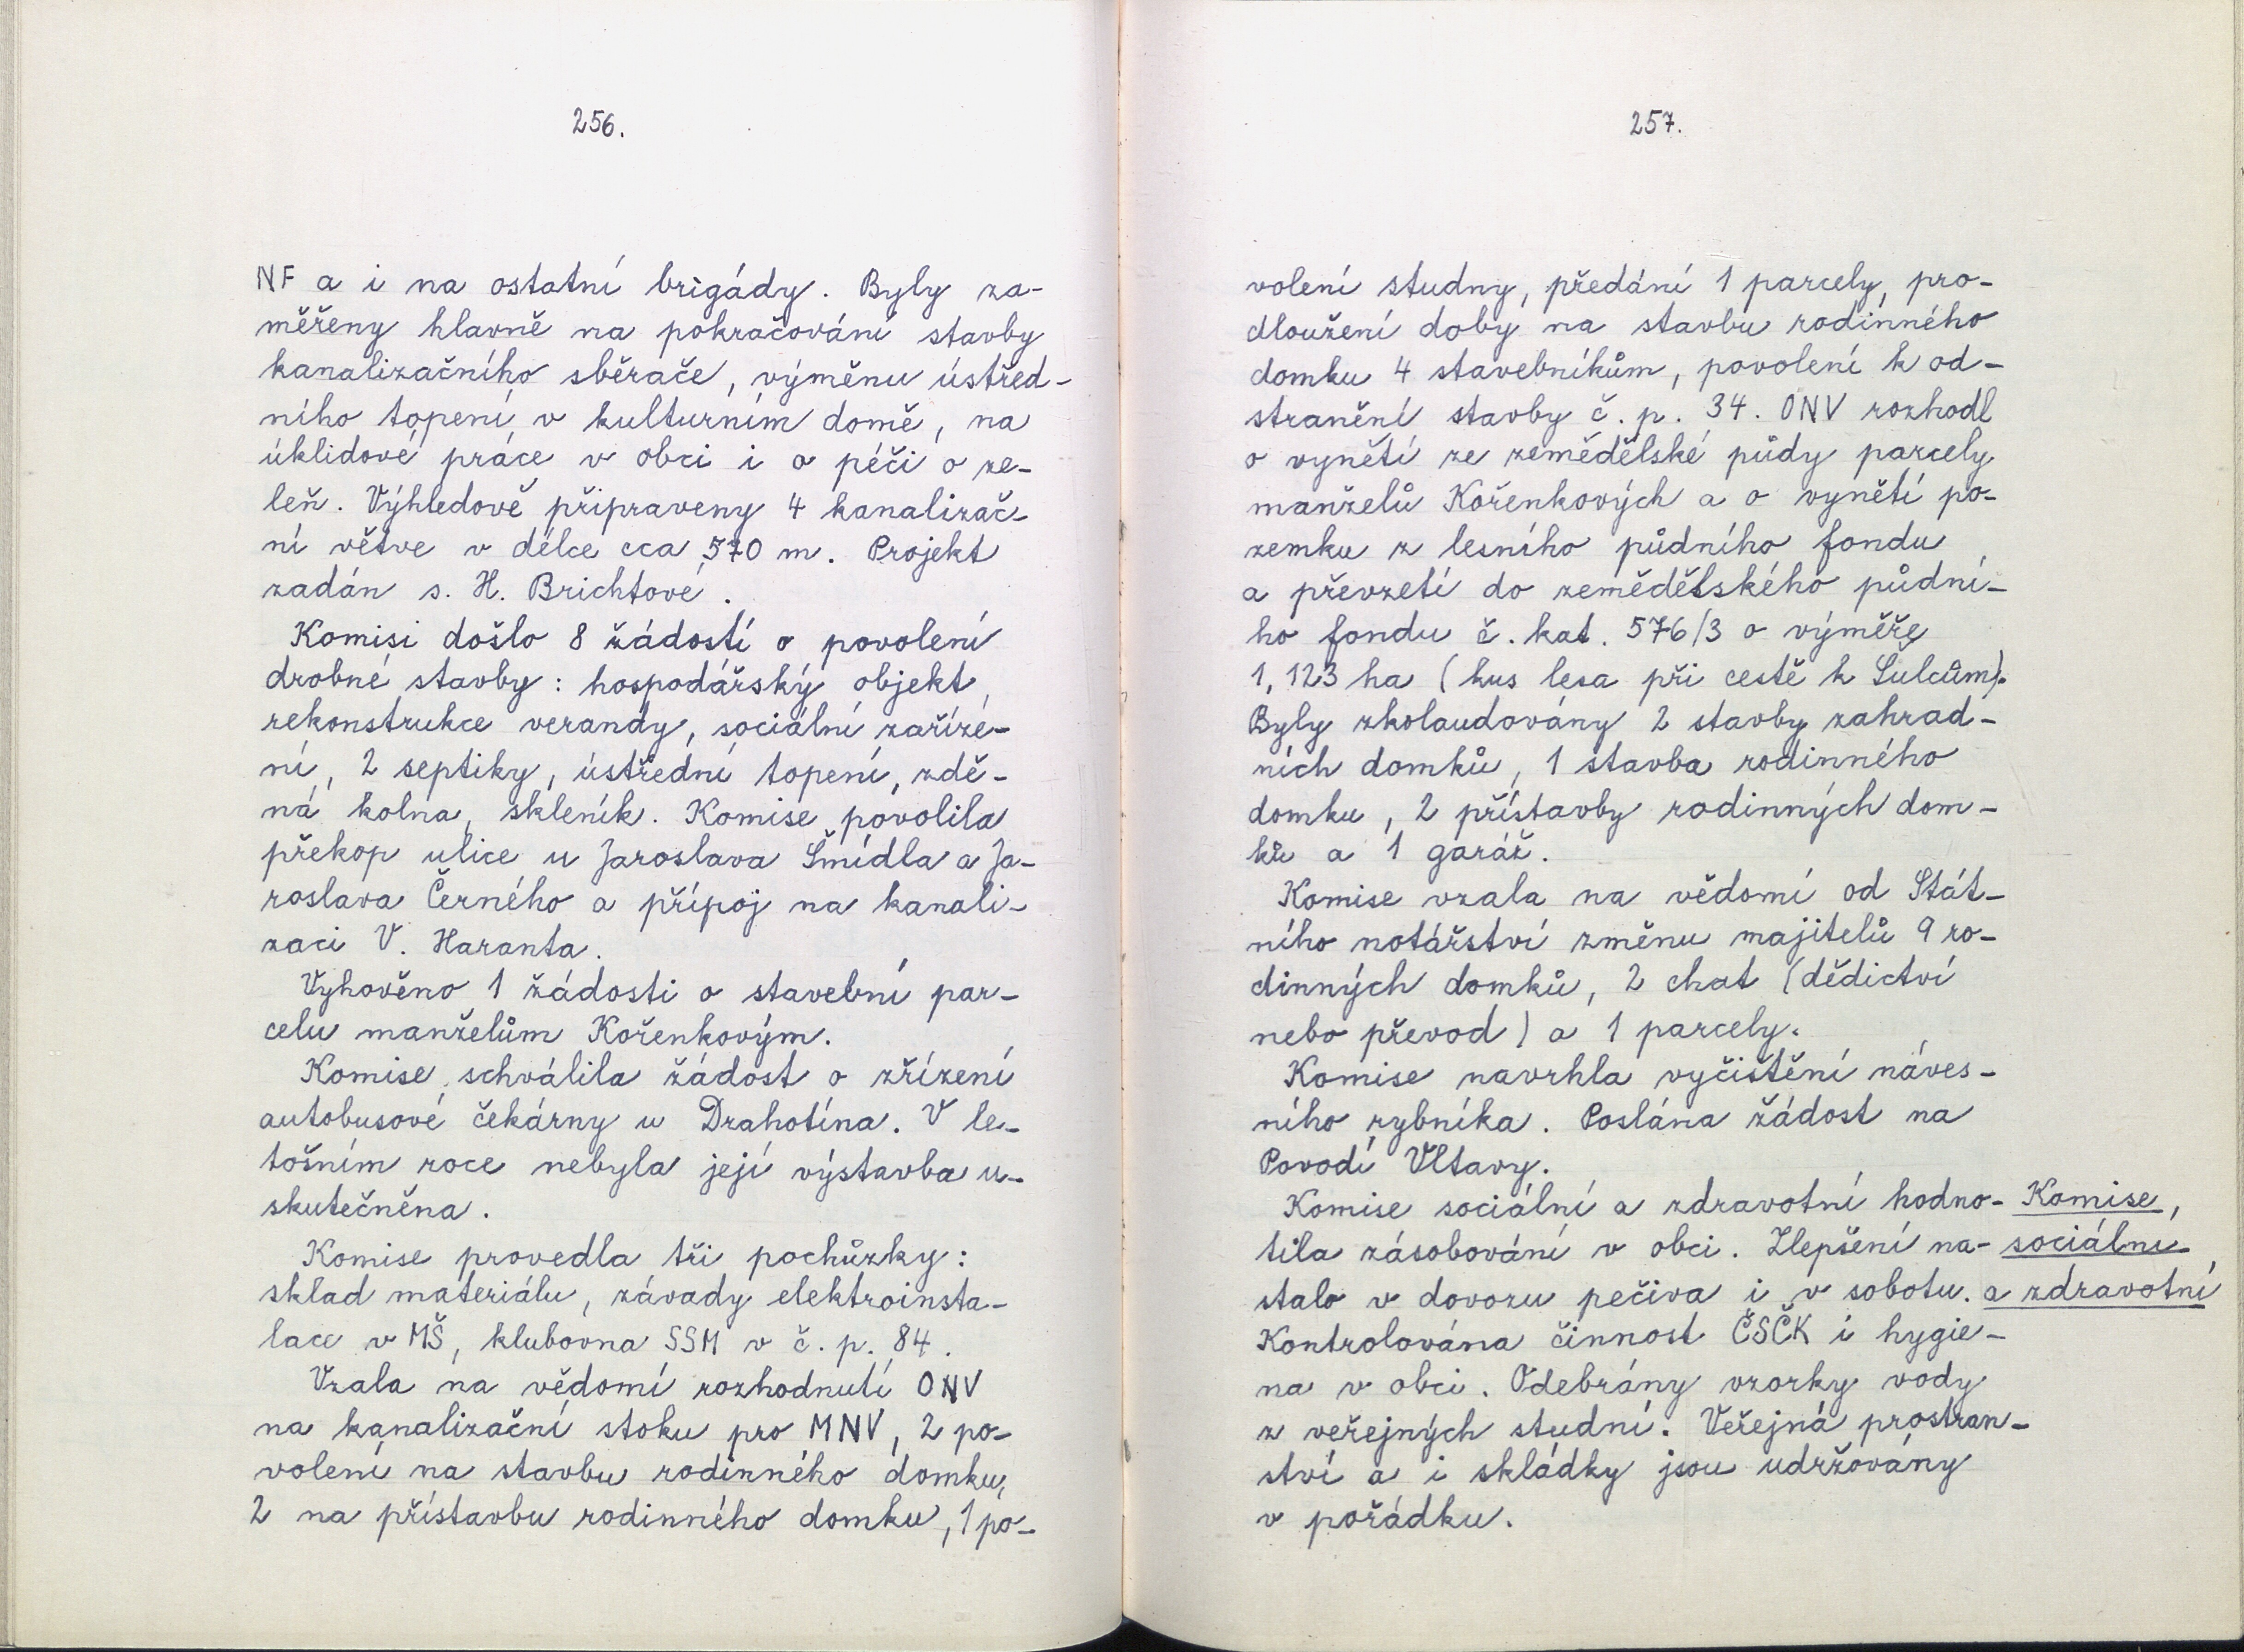 256.
NF a i na ostatní brigády. Byly za-
měřeny hlavně na pokračování stavby
kanalizačního sběrače, výměnu ústřed-
ního topení v kulturním domě, na
úklidové práce v obci i o péči o ze-
leň. Výhledově připraveny 4 kanalizač-
ní větve v délce cca 570 m. Projekt
zadán s. H. Brichtové.
Komisi došlo 8 žádostí o povolení
drobné stavby: hospodářský objekt,
rekonstrukce verandy, sociální zaříze-
ní, 2 septiky, ústřední topení, zdě-
ná kolna, skleník. Komise povolila
překop ulice u Jaroslava Šmídla a Ja-
roslava Černého a přípoj na kanali-
zaci V. Haranta.
Vyhověno 1 žádosti o stavební par-
celu manželům Kořenkovým.
Komise schválila žádost o zřízení
autobusové čekárny u Drahotína. V le-
tošním roce nebyla její výstavba u-
skutečněna.
Komise provedla tři pochůzky:
sklad materiálu, závady elektroinsta-
lace v MŠ, klubovna SSM v č. p. 84.
Vzala na vědomí rozhodnutí ONV
na kanalizační stoku pro MNV, 2 po-
volení na stavbu rodinného domku,
2 na přístavbu rodinného domku, 1 po-
257.
volení studny, předání 1 parcely, pro-
dloužení doby na stavbu rodinného
domku 4 stavebníkům, povolení k od-
stranění stavby č. p. 34. ONV rozhodl
o vynětí ze zemědělské půdy parcely
manželů Kořenkových a o vynětí po-
zemku z lesního půdního fondu
a převzetí do zemědělského půdní-
ho fondu č. kat. 576/3 o výměře
1,123 ha (kus lesa při cestě k Šulcům).
Byly zkolaudovány 2 stavby zahrad-
ních domků, 1 stavba rodinného
domku, 2 přístavby rodinných dom-
ků a 1 garáž.
Komise vzala na vědomí od Stát-
ního notářství změnu majitelů 9 ro-
dinných domků, 2 chat (dědictví
nebo převod) a 1 parcely.
Komise navrhla vyčištění náves-
ního rybníka. Poslána žádost na
Povodí Vltavy.
Komise sociální a zdravotní hodno- Komise,
tila zásobování v obci. Zlepšení na- sociální
stalo v dovozu pečiva i v sobotu. a zdravotní
Kontrolována činnost ČSČK i hygie-
na v obci. Odebrány vzorky vody
z veřejných studní. Veřejná prostran-
ství a i skládky jsou udržovány
v pořádku.